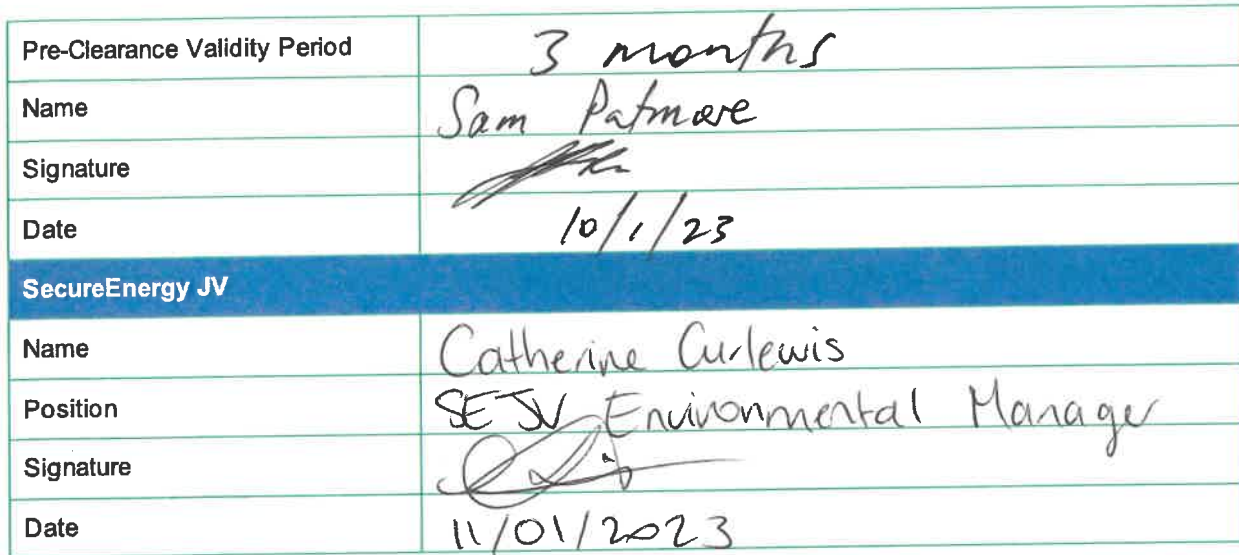 Pre-Clearance Validity Period 3 months
Name Sam Patmore
Signature
Date 10/1/23
SecureEnergy JV
Name Catherine Curlewis
Position SEJV Environmental Manager
Signature
Date 11/01/2023